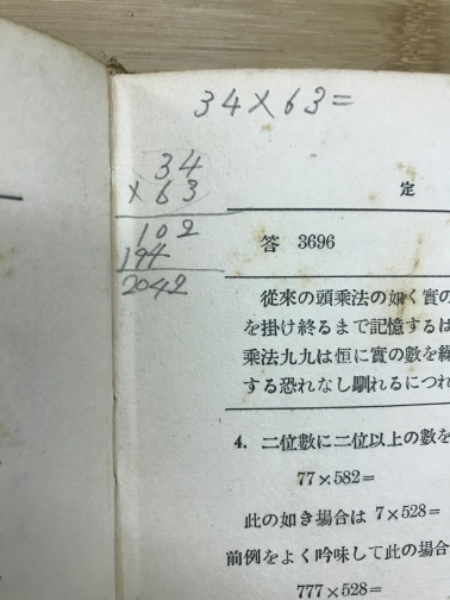 34×63=
34
×63
102
194
2042
定
答 3696
從來の頭乘法の如く實の
を掛け終るまで記憶するは
乘法九九は恒に實の數を
する恐れなし馴れるにつれ
4. 二位數に二位以上の數を
77×582=
此の如き場合は 7×528=
前例をよく吟味して此の場合
777×528=